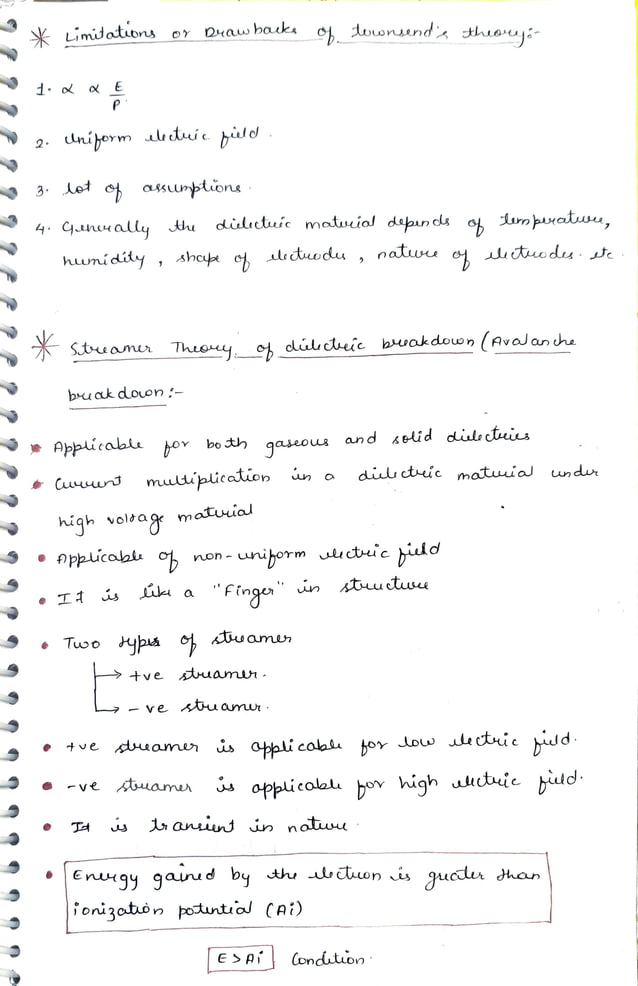 * Limitations or Drawbacks of townsend's theory:-
1. α α E/P
2. Uniform electric field.
3. lot of assumptions.
4. Generally the dielectric material depends of temperature,
humidity, shape of electrodes, nature of electrodes. etc.
* Streamer Theory of dielectric breakdown (Avalanche
breakdown:-
* Applicable for both gaseous and solid dielectrics
* Current multiplication in a dielectric material under
high voltage material
• Applicable of non-uniform electric field
• It is like a "Finger" in structure
• Two types of streamer
→ +ve streamer.
→ -ve streamer.
• +ve streamer is applicable for low electric field.
• -ve streamer is applicable for high electric field.
• It is transient in nature.
• Energy gained by the electron is greater than
ionization potential (Ai)
E>Ai Condition.